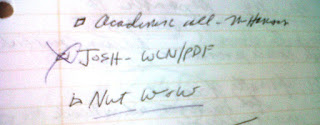 Academic all-
JOSH- WLN/PDF
Nut WoW